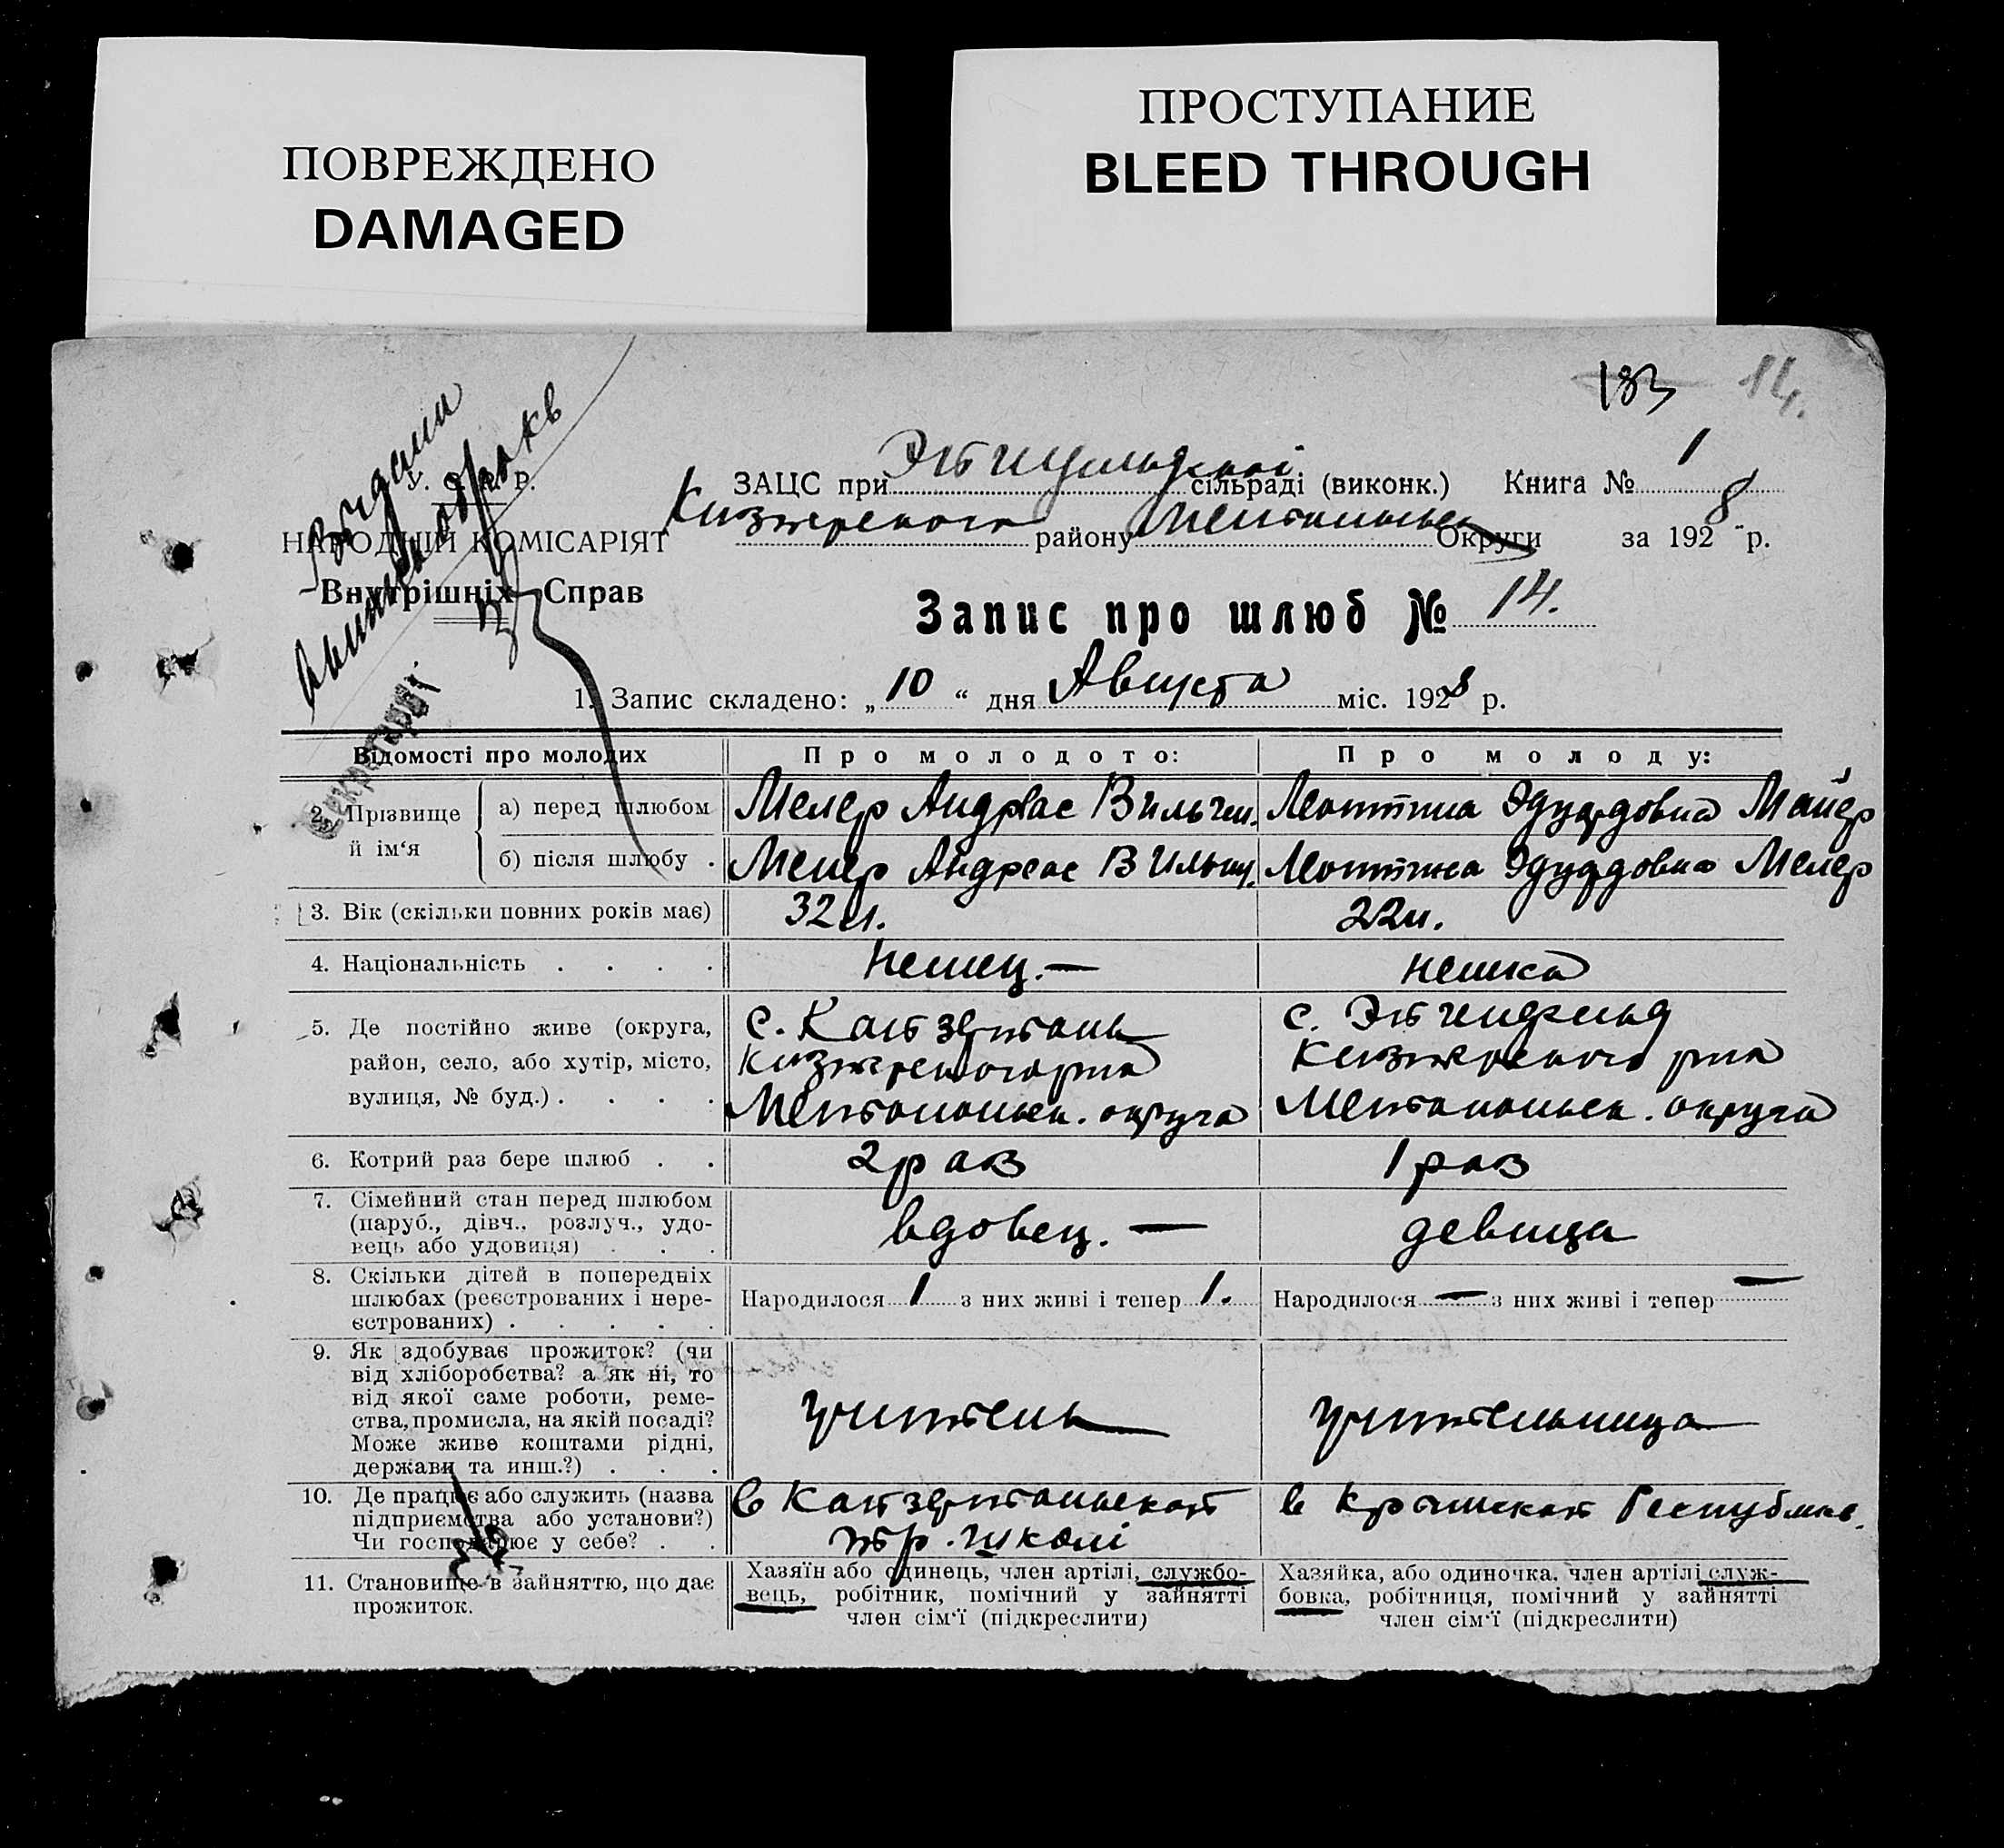 ПОВРЕЖДЕНО
DAMAGED
ПРОСТУПАНИЕ
BLEED THROUGH
183 14.
У. С. Р. Р.
НАРОДНІЙ КОМІСАРІЯТ
Внутрішніх Справ
Видали
ЗАЦС при сільраді (виконк.) Книга № 1
району Округи за 1928 р.
Запис про шлюб № 14.
1. Запис складено: „ 10 “ дня Августа міс. 1928 р.
Відомості про молодих Про молодого: Про молоду:
2. Прізвище й ім‘я
а) перед шлюбом Мелер Андреас Вильгел. Леонтина Эдуардовна Майер
б) після шлюбу . Мелер Андреас Вильг. Леонтина Эдуардовна Мелер
3. Вік (скільки повних років має) 32 л. 22 л.
4. Національність . . . . немец. — немка
5. Де постійно живе (округа, район, село, або хутір, місто, вулиця, № буд.) . . . .
с.
Мелитопольск. округа
с.
Мелитопольск. округа
6. Котрий раз бере шлюб . . 2 раз 1 раз
7. Сімейний стан перед шлюбом
(паруб., дівч., розлуч., удо-
вець або удовиця) . . . вдовец. — девица
8. Скільки дітей в попередніх
шлюбах (реєстрованих і нере-
єстрованих) . . . . .
Народилося 1 з них живі і тепер 1. Народилося — з них живі і тепер —
9. Як здобуває прожиток? (чи
від хліборобства? а як ні, то
від якої саме роботи, реме-
ства, промисла, на якій посаді?
Може живе коштами рідні,
держави та инш.?) . . .
учитель учительница
10. Де працює або служить (назва
підприємства або установи?)
Чи господарює у себе? . .
в
тр. школі
в Крымской Республике.
11. Становище в зайняттю, що дає
прожиток.
Хазяїн або одинець, член артілі, службо-
вець, робітник, помічний у зайнятті
член сім‘ї (підкреслити)
Хазяйка, або одиночка, член артілі служ-
бовка, робітниця, помічний у зайнятті
член сім‘ї (підкреслити)